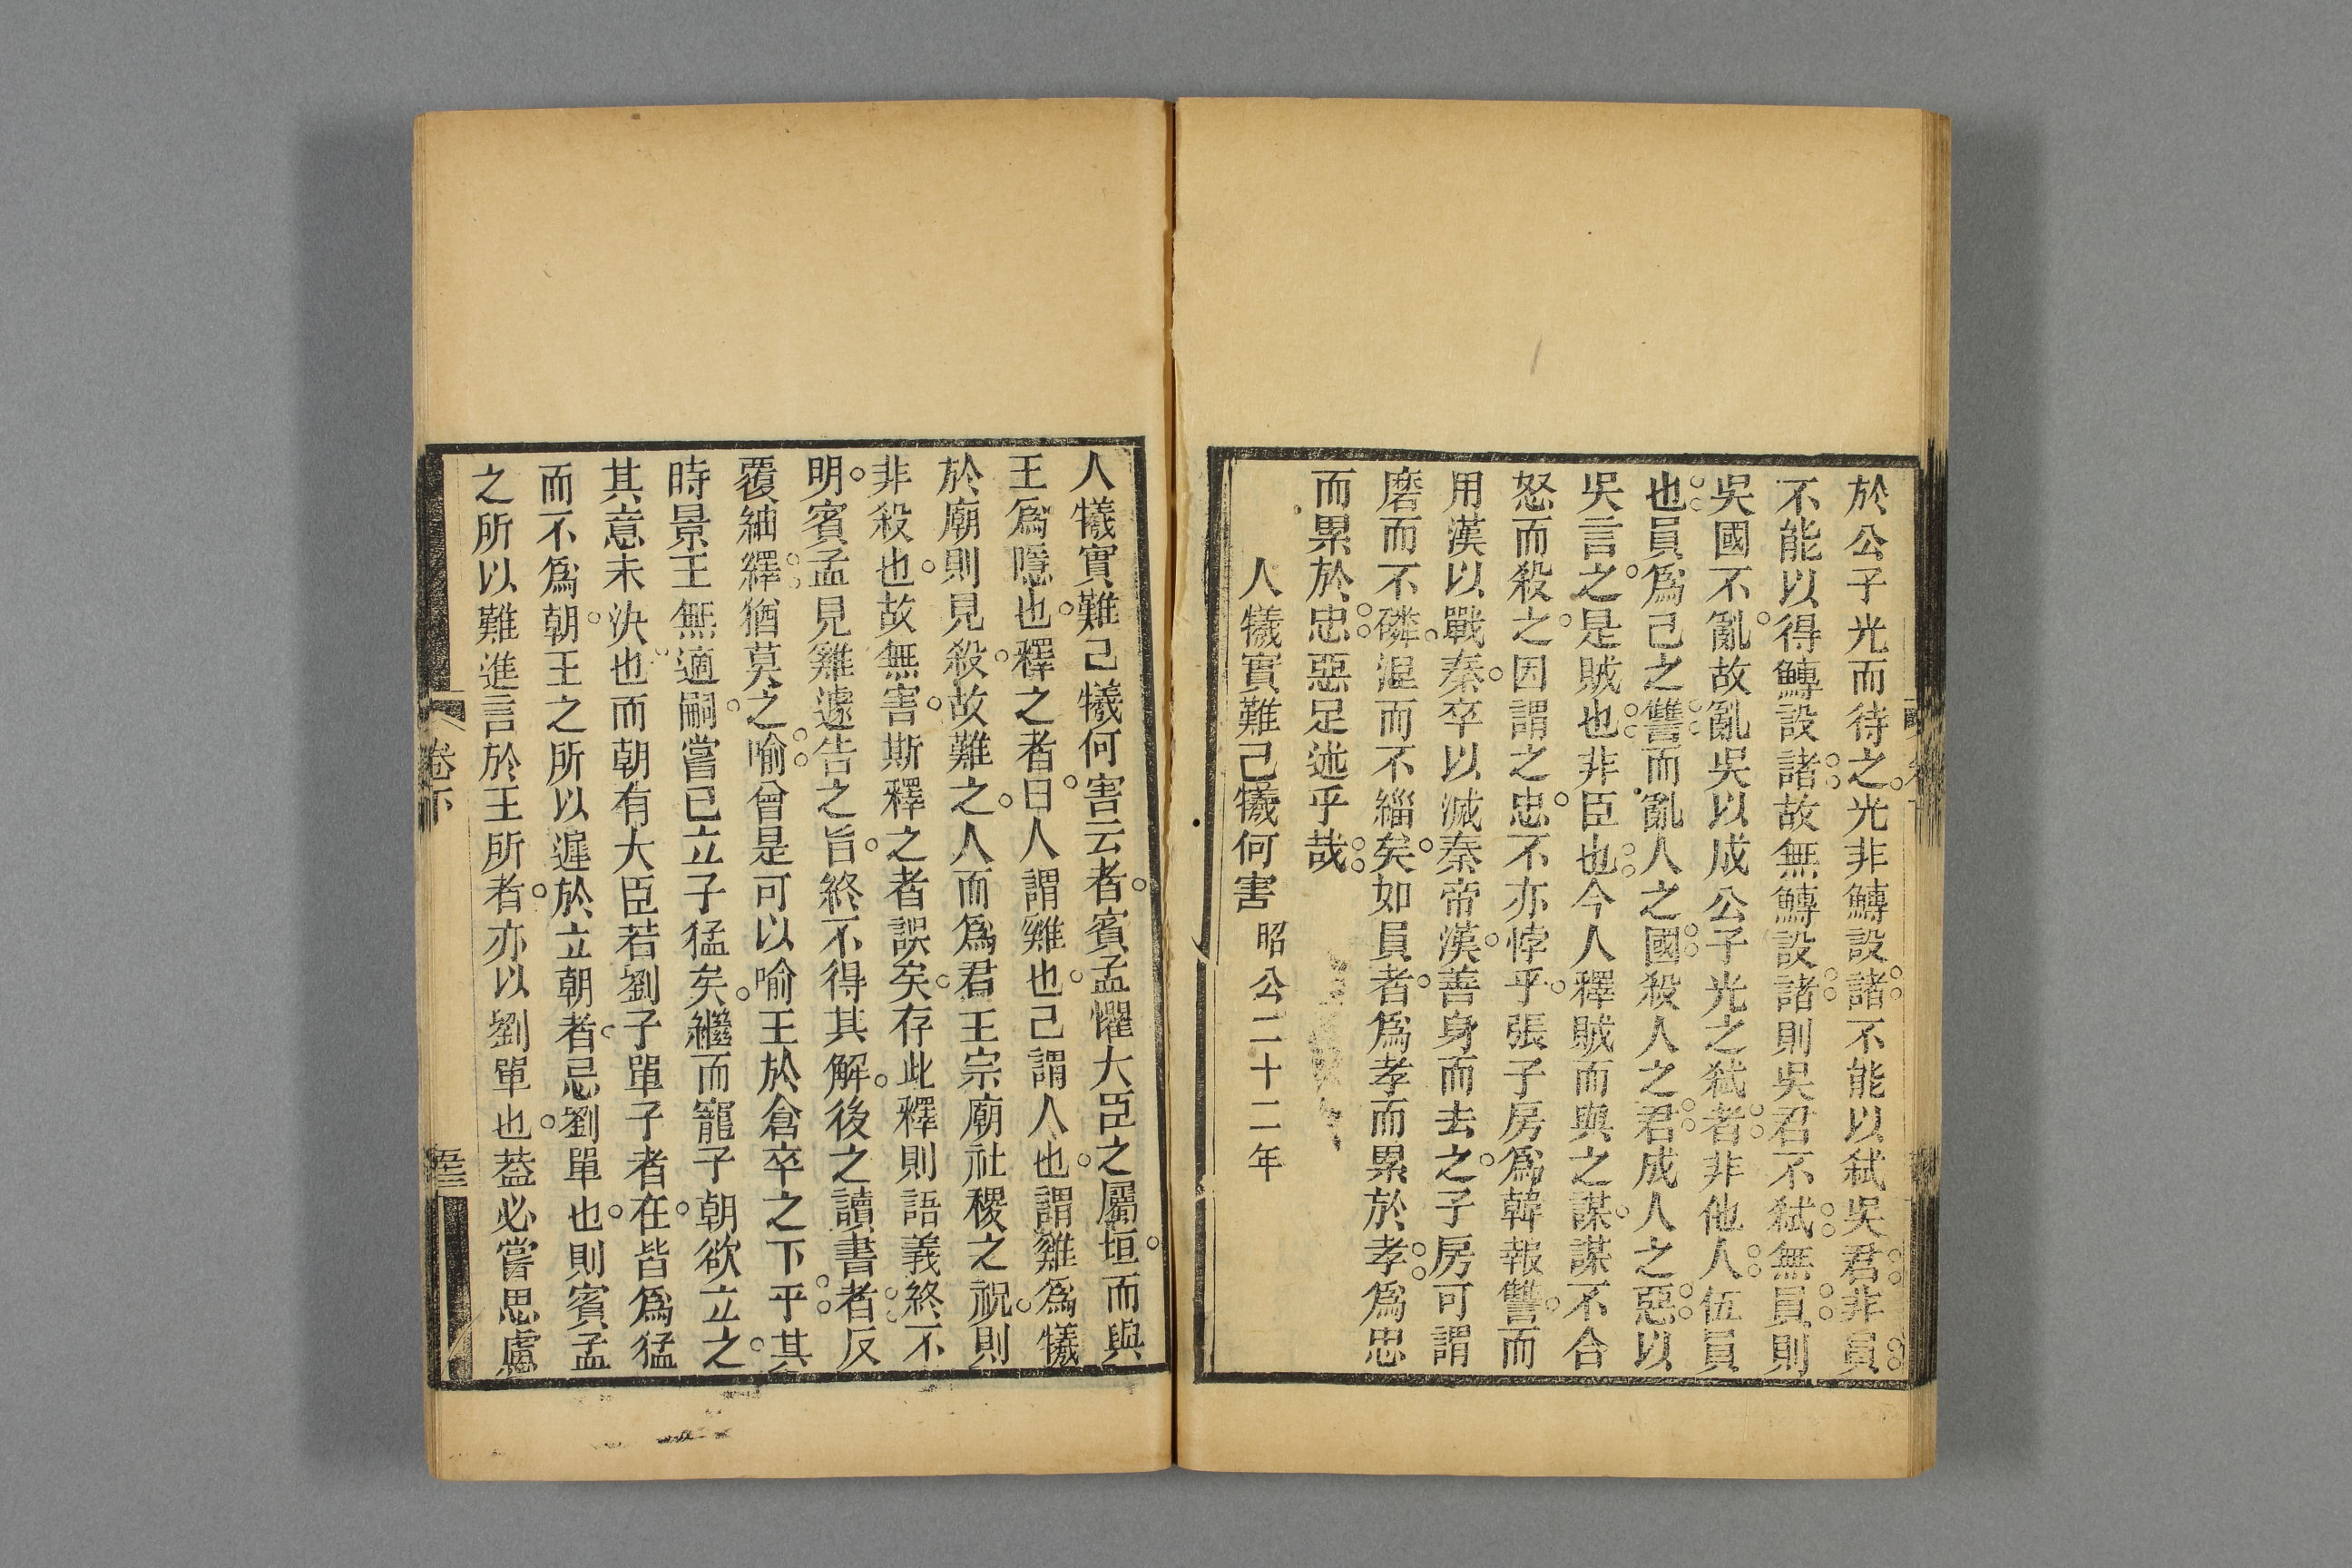 於公子光而待之光非鱄設諸不能以弒吳君非員
不能以得鱄設諸故無鱄設諸則吳君不弒無員則
吳國不亂故亂吳以成公子光之弒者非他人伍員
也員爲己之讐而亂人之國殺人之君成人之惡以
吳言之是賊也非臣也今人釋賊而與之謀謀不合
怒而殺之因謂之忠不亦悖乎張子房爲韓報讐而
用漢以戰秦卒以滅秦帝漢善身而去之子房可謂
磨而不磷涅而不緇矣如員者爲孝而累於孝爲忠
而累於忠惡足述乎哉
人犧實難己犧何害 昭公二十二年
人犧實難己犧何害云者賓孟懼大臣之屬垣而與
王爲隱也釋之者曰人謂雞也己謂人也謂雞爲犧
於廟則見殺故難之人而爲君王宗廟社稷之祝則
非殺也故無害斯釋之者誤矣存此釋則語義終不
明賓孟見雞遽告之旨終不得其解後之讀書者反
覆紬繹猶莫之喻曾是可以喻王於倉卒之下乎其
時景王無適嗣嘗已立子猛矣繼而寵子朝欲立之
其意未決也而朝有大臣若劉子單子者在皆爲猛
而不爲朝王之所以遲於立朝者忌劉單也則賓孟
之所以難進言於王所者亦以劉單也葢必嘗思慮
卷下